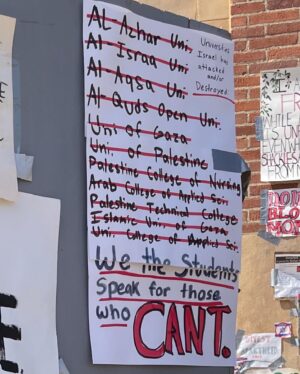 Al-Azhar Uni.
Al-Israa Uni
Al-Aqsa Uni
Al-Quds Open Uni.
Uni of Gaza
Uni. of Palestine
Palestine College of Nursing
Arab College of Applied Sci.
Palestine Technical College
Islamic Uni. of Gaza
Uni. College of Applied Sci
Universities
Israel has
attacked
and/or
Destroyed
We the Students
Speak for those
who CANT.